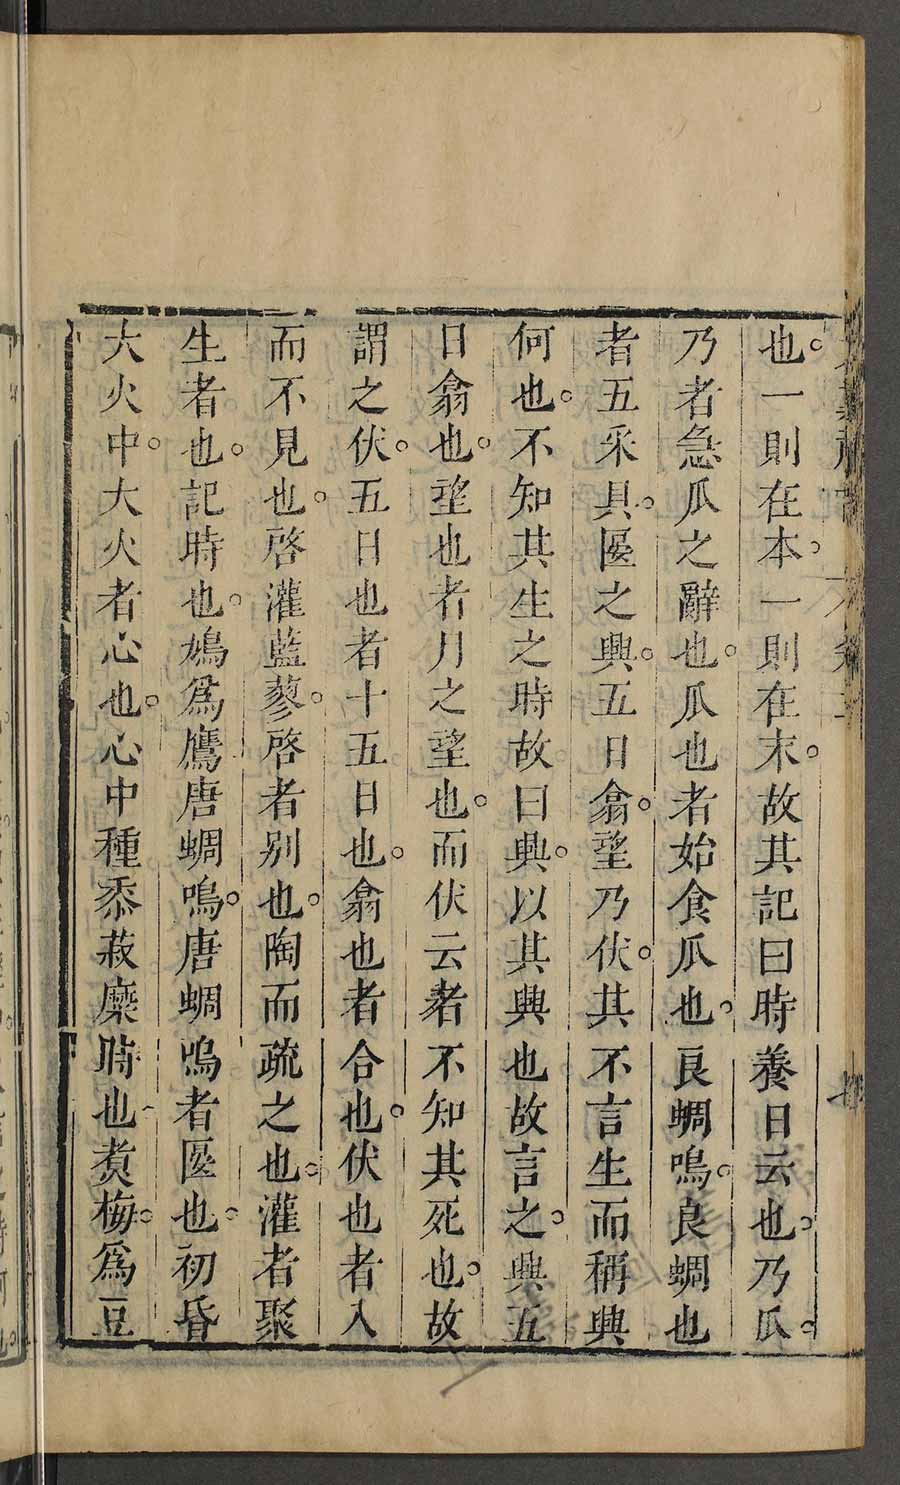 也。一則在本。一則在末。故其記曰時養日云也。乃瓜。
乃者急瓜之辭也。瓜也者始食瓜也。良蜩鳴。良蜩也
者五采具。匽之興。五日翕。望乃伏。其不言生而稱興
何也。不知其生之時故曰興。以其興也故言之。興五
日翕也。望也者月之望也。而伏云者不知其死也。故
謂之伏。五日也者十五日也。翕也者合也。伏也者入
而不見也。啓灌藍蓼。啓者别也。陶而疏之也。灌者聚
生者也。記時也。鳩爲鷹唐蜩鳴。唐蜩鳴者匽也。初昏
大火中。大火者心也。心中種黍菽糜時也。煑梅。爲豆